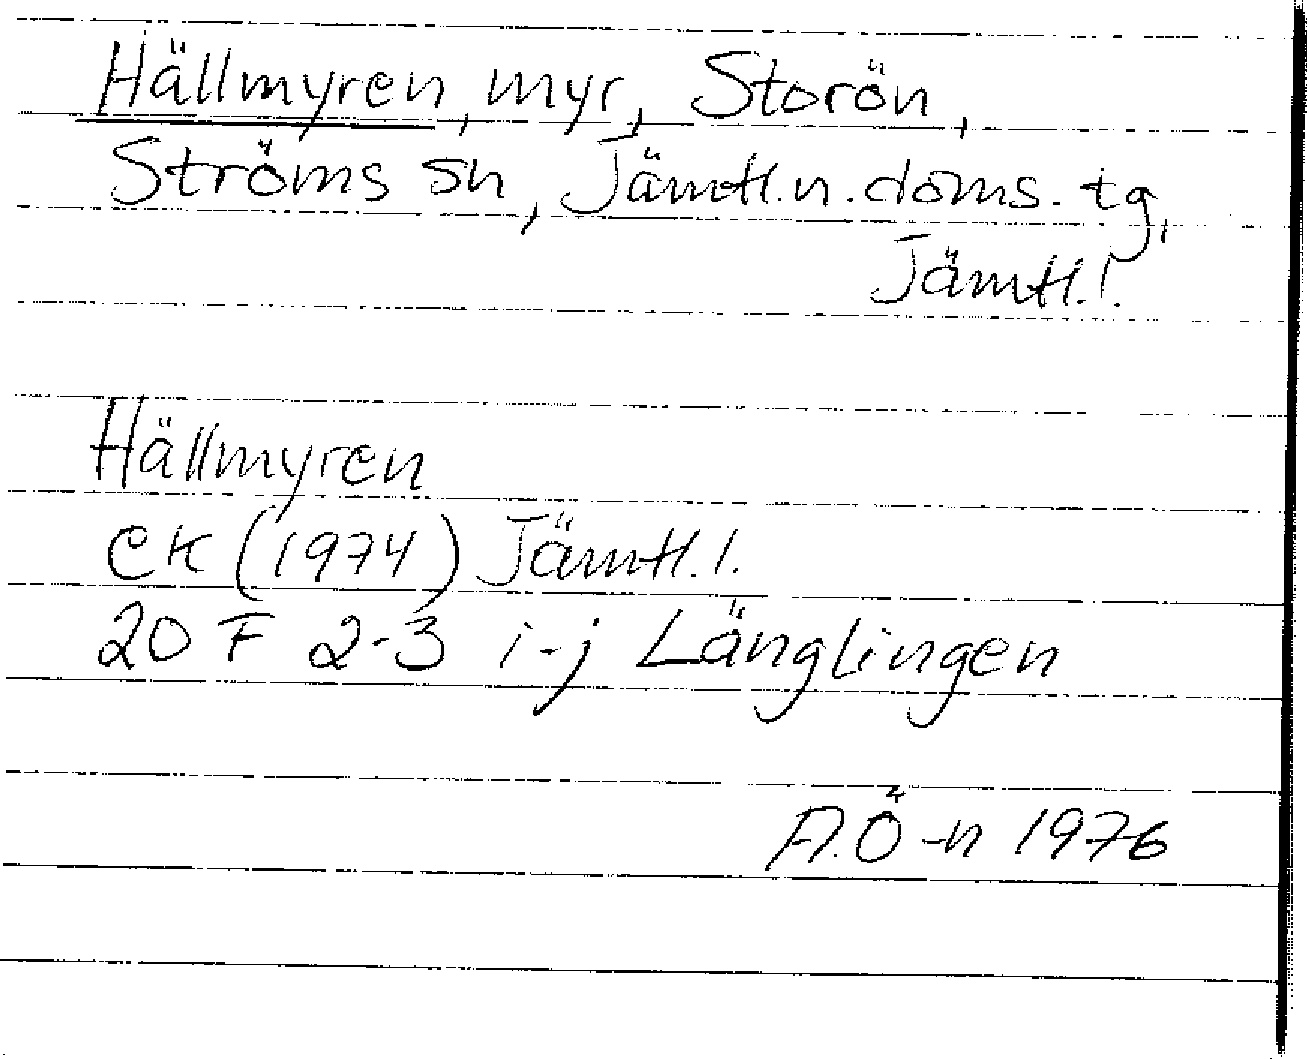 Hällmyren, myr, Storön,
Ströms sn, Jämtl.n.doms.tg,
Jämtl.l.
Hällmyren
EK (1974) Jämtl.l.
20 F 2-3 i-j Länglingen
A.Ö-n 1976